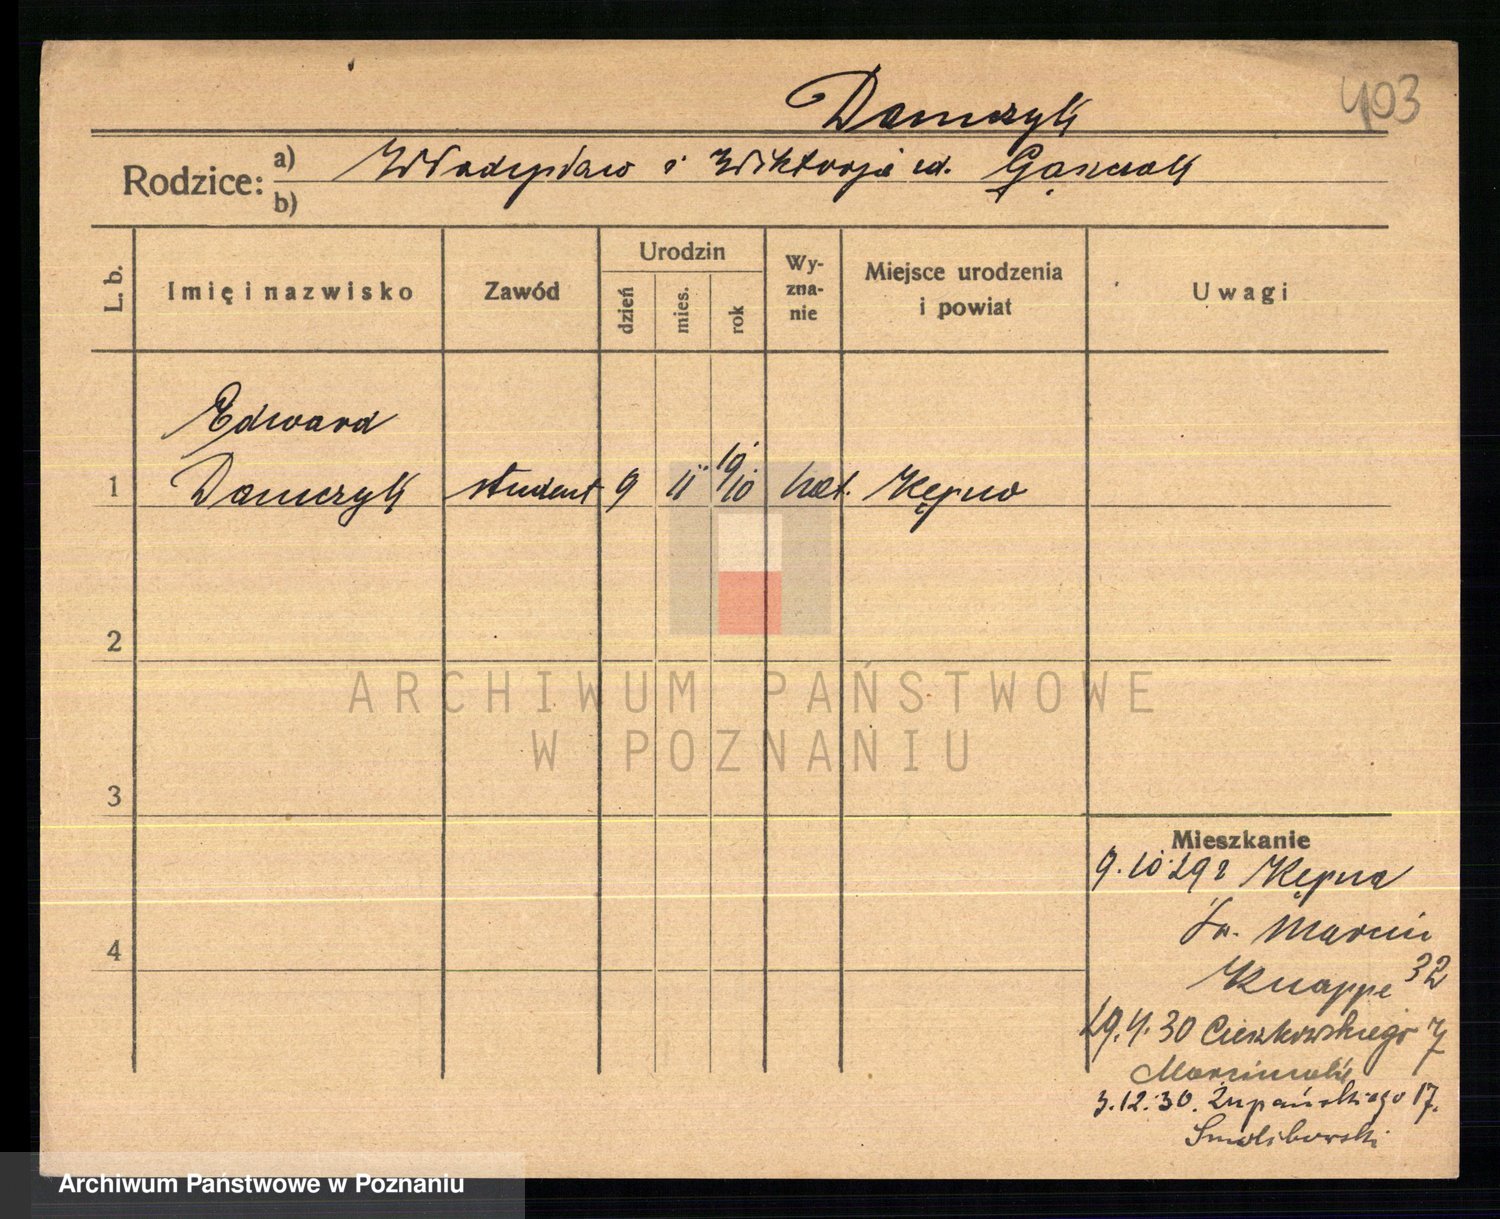 403
Damczyk
Rodzice: a) Władysław i Wiktorja ud. Gąszczak
b)
L. b.
Imię i nazwisko
Zawód
Urodzin
dzień
mies.
rok
Wy-
zna-
nie
Miejsce urodzenia
i powiat
Uwagi
Edward
1 Damczyk student 9 11 19/10 kat. Kępno
2
3
4
Mieszkanie
9.10.29 z Kępna
Św. Marcin
Knappe 32
29.4.30 Cieszkowskiego 7
Marciniak
3.12.30. Żupańskiego 17.
Smolibowski
ARCHIWUM PAŃSTWOWE
W POZNANIU
Archiwum Państwowe w Poznaniu